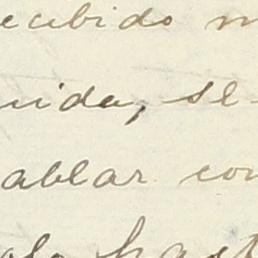 ecibido m
uida, se
ablar con
olo hast